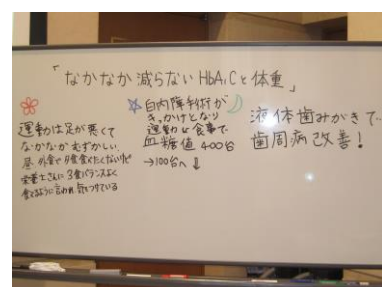 「なかなか減らないHbA1Cと体重」
運動は足が悪くて
なかなかむずかしい
昼 外食で 夕食食べたくないけど
栄養士さんに 3食バランスよく
食べるように言われ 気をつけている
白内障手術が
きっかけとなり
運動と食事で
血糖値400台
→100台へ↓
液体歯みがきで…
歯周病改善!